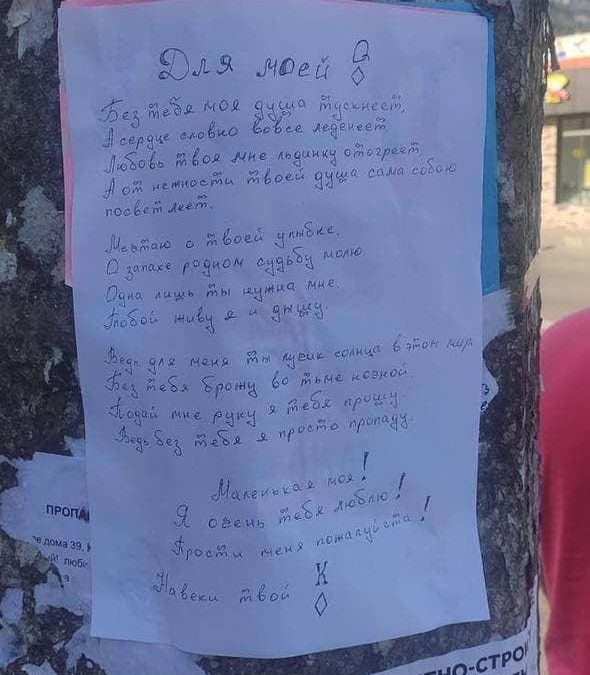 Для моей Q
◊
Без тебя моя душа тускнеет,
А сердце словно вовсе леденеет,
Любовь твоя мне льдинку отогреет,
А от нежности твоей душа сама собою
посветлеет.
Мечтаю о твоей улыбке.
О запахе родном судьбу молю.
Одна лишь ты нужна мне.
Тобой живу я и дышу
Ведь для меня ты лусик солнца в этом мир
Без тебя брожу во тьме ночной.
Подай мне руку я тебя прошу.
Ведь без тебя я просто пропаду.
Маленькая моя!
Я очень тебя люблю!
Прости меня пожалуйста!
Навеки твой К
◊
ПРОПА
дома 39,
люби
НО-СТРО